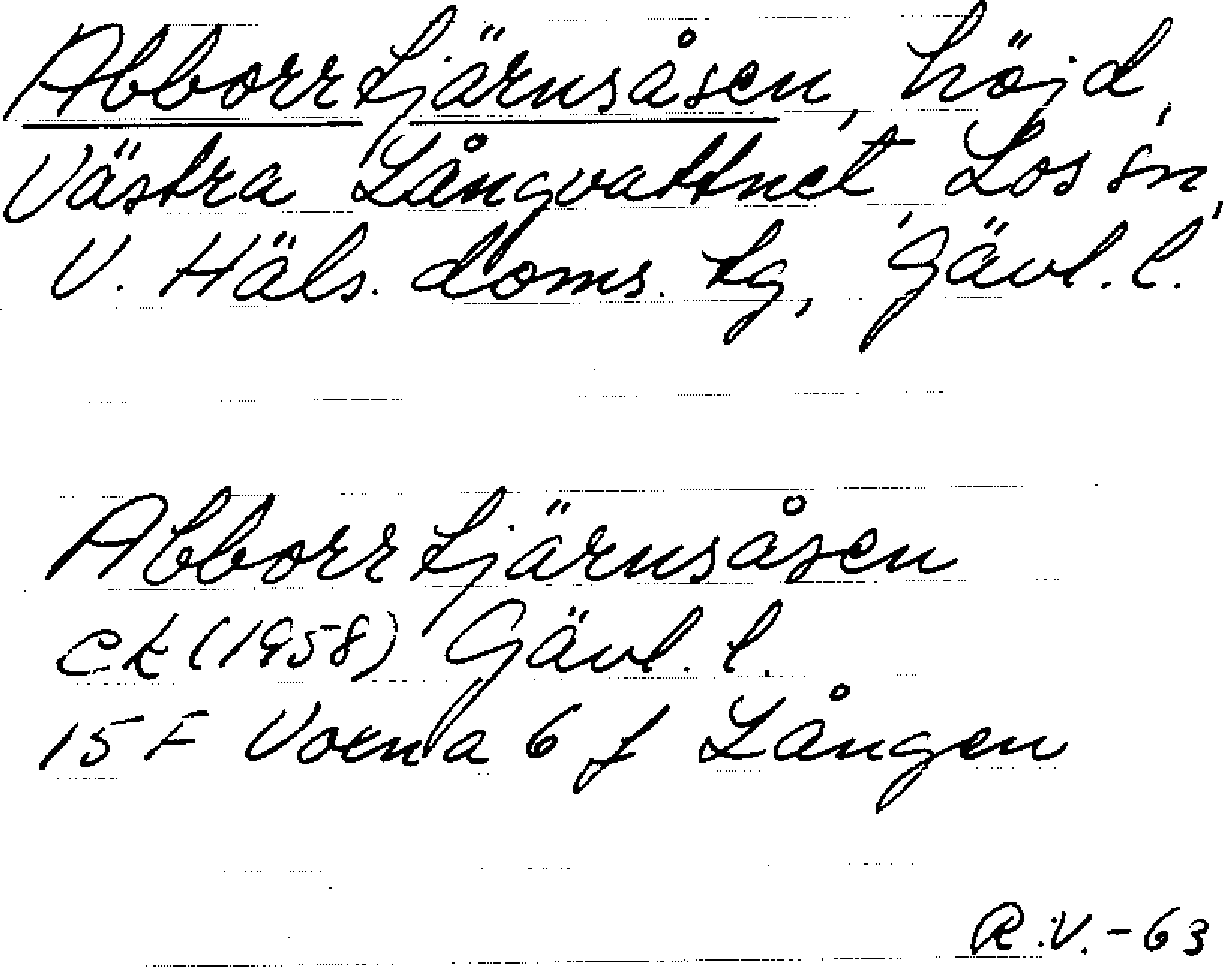 Abborrtjärnsåsen, höjd,
Västra Långvattnet, Los sn,
V. Häls. doms. tg, Gävl. l.
Abborrtjärnsåsen
ek (1958) Gävl. l.
15 F Voxna 6 f Lången
R.V. -63